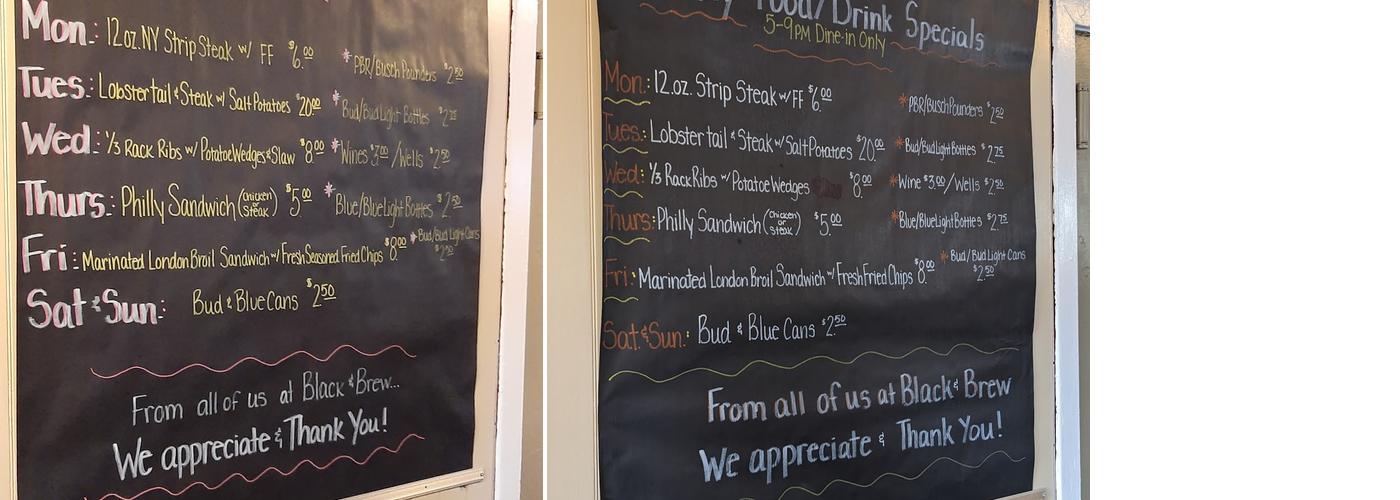 Mon.: 12oz. NY Strip Steak w/ FF $6.00 *PBR/Busch Pounders $2.50
Tues.: Lobster tail & Steak w/ Salt Potatoes $20.00 *Bud/Bud Light Bottles $2.75
Wed.: 1/3 Rack Ribs w/ Potatoe Wedges & Slaw $8.00 *Wines $3.00/Wells $2.50
Thurs.: Philly Sandwich (Chicken or Steak) $5.00 *Blue/Blue Light Bottles
Fri.: Marinated London Broil Sandwich w/ Fresh Seasoned Fried Chips $8.00 *Bud/Bud Light Cans $2.50
Sat & Sun.: Bud & Blue Cans $2.50
From all of us at Black & Brew...
We appreciate & Thank You!
Food/Drink Specials
5-9PM Dine-in Only
Mon.: 12.oz. Strip Steak w/ FF $6.00 *PBR/Busch Pounders $2.50
Tues.: Lobster tail & Steak w/ Salt Potatoes $20.00 *Bud/Bud Light Bottles $2.75
Wed.: 1/3 Rack Ribs w/ Potatoe Wedges $8.00 *Wine $3.00/Wells $2.50
Thurs.: Philly Sandwich (Chicken or Steak) $5.00 *Blue/Blue Light Bottles $2.75
Fri.: Marinated London Broil Sandwich w/ Fresh Fried Chips $8.00 *Bud/Bud Light Cans $2.50
Sat. & Sun.: Bud & Blue Cans $2.50
From all of us at Black & Brew
We appreciate & Thank You!